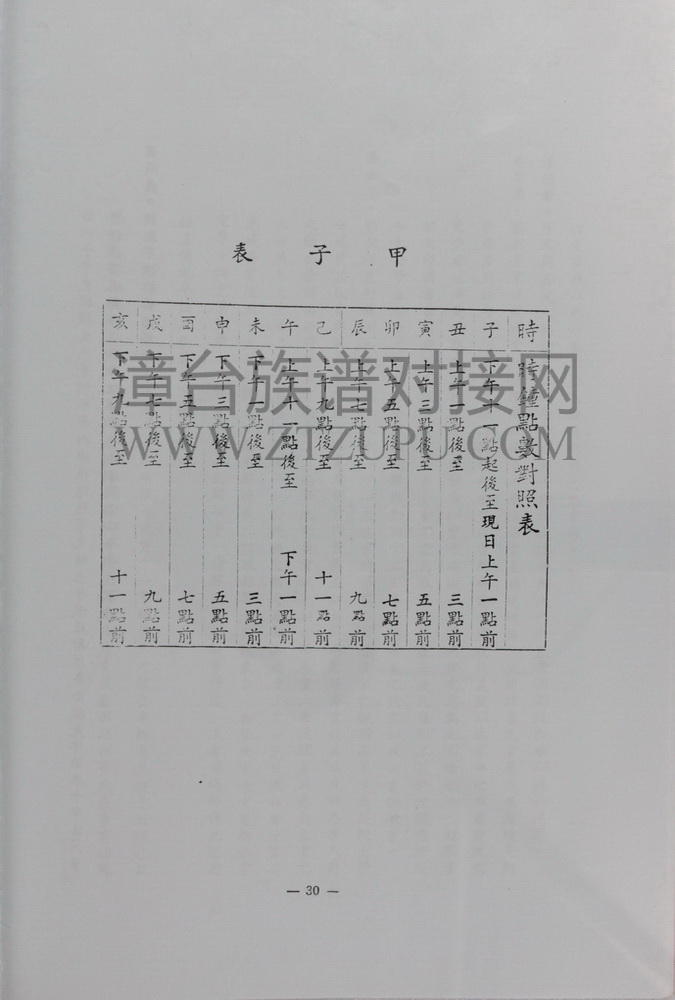 甲子表
時 時鐘點數對照表
子 下午十一點起後至現日上午一點前
丑 上午一點後至 三點前
寅 上午三點後至 五點前
卯 上午五點後至 七點前
辰 上午七點後至 九點前
己 上午九點後至 十一點前
午 上午十一點後至 下午一點前
未 下午一點後至 三點前
申 下午三點後至 五點前
酉 下午五點後至 七點前
戌 下午七點後至 九點前
亥 下午九點後至 十一點前
漳台族谱对接网
WWW.ZTZUPU.COM
— 30 —